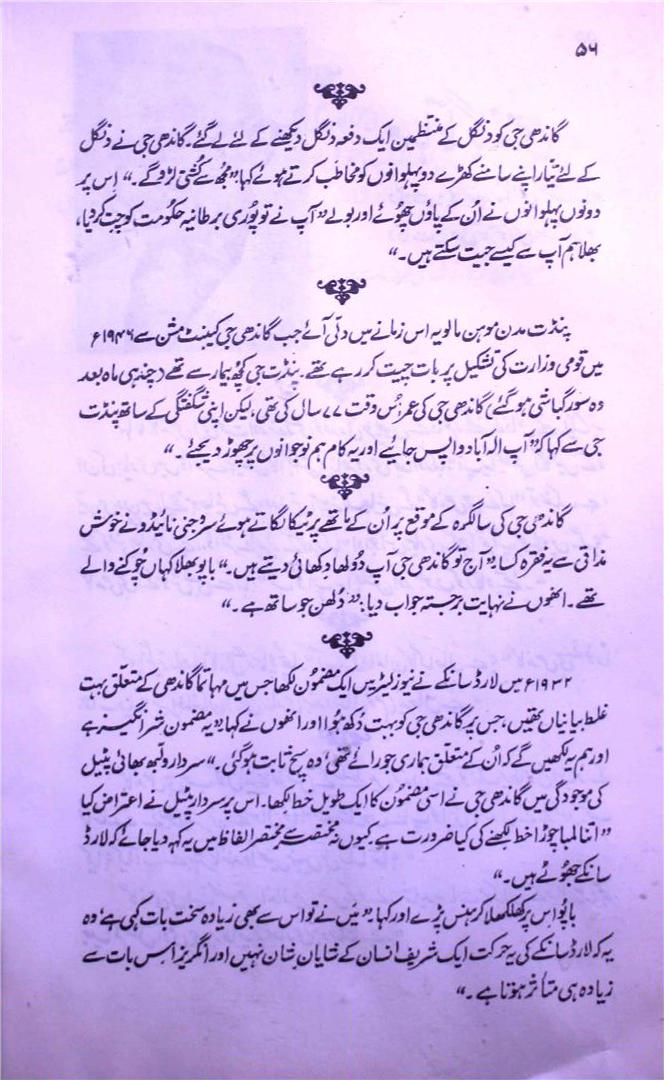 ۵۶
گاندھی جی کو دنگل کے منتظمین ایک دفعہ دنگل دیکھنے کے لئے لے گئے۔ گاندھی جی نے دنگل
کے لئے تیار اپنے سامنے کھڑے دو پہلوانوں کو مخاطب کرتے ہوئے کہا "مجھ سے کُشتی لڑو گے۔" اِس پر
دونوں پہلوانوں نے اُن کے پاؤں چھوئے اور بولے "آپ نے تو پوری برطانیہ حکومت کو چت کر دیا،
بھلا ہم آپ سے کیسے جیت سکتے ہیں۔"
پنڈت مدن موہن مالویہ اس زمانے میں دلّی آئے جب گاندھی جی کیبنٹ مشن سے ۱۹۴۶ء
میں قومی وزارت کی تشکیل پر بات چیت کر رہے تھے۔ پنڈت جی کچھ بیمار سے تھے (چند ہی ماہ بعد
وہ سورگباشی ہو گئے) گاندھی جی کی عمر اُس وقت ۷۷ سال کی تھی، لیکن اپنی شگفتگی کے ساتھ پنڈت
جی سے کہا کہ "آپ الہ آباد واپس جائیے اور یہ کام ہم نوجوانوں پر چھوڑ دیجئے۔"
گاندھی جی کی سالگرہ کے موقع پر اُن کے ماتھے پر ٹیکا لگاتے ہوئے سروجنی نائیڈو نے خوش
مذاقی سے یہ فقرہ کسا "آج تو گاندھی جی آپ دُولھا دکھائی دیتے ہیں۔" باپو بھلا کہاں چُوکنے والے
تھے۔ انھوں نے نہایت برجستہ جواب دیا: "دُلھن جو ساتھ ہے۔"
۱۹۳۲ء میں لارڈ سانکے نے نیوز لیٹرس ایک مضمون لکھا جس میں مہاتما گاندھی کے متعلق بہت
غلط بیانیاں تھیں، جس پر گاندھی جی کو بہت دُکھ ہُوا اور انھوں نے کہا "یہ مضمون شرانگیز ہے
اور ہم یہ لکھیں گے کہ اُن کے متعلق ہماری جو رائے تھی، وہ سچ ثابت ہو گئی۔" سردار ولبھ بھائی پٹیل
کی موجودگی میں گاندھی جی نے اسی مضمون کا ایک طویل خط لکھا۔ اس پر سردار پٹیل نے اعتراض کیا
"اتنا لمبا چوڑا خط لکھنے کی کیا ضرورت ہے کیوں نہ مختصر سے مختصر الفاظ میں یہ کہہ دیا جائے کہ لارڈ
سانکے جھوٹے ہیں۔"
باپُو اس پر کھلکھلا کر ہنس پڑے اور کہا "میں نے تو اس سے بھی زیادہ سخت بات کہی ہے، وہ
یہ کہ لارڈ سانکے کی یہ حرکت ایک شریف انسان کے شایانِ شان نہیں اور انگریز اس بات سے
زیادہ ہی متأثر ہوتا ہے۔"